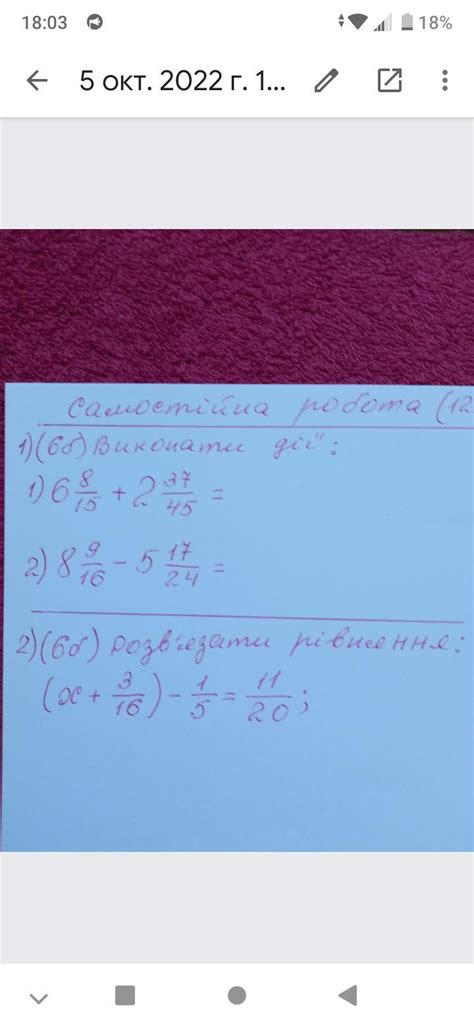 18:03 18%
5 окт. 2022 г. 1...
Самостійна робота (12
1)(6б) Виконати дії:
1) 6 8/15 + 2 37/45 =
2) 8 9/16 - 5 17/24 =
2)(6б) Розв'язати рівняння:
(x + 3/16) - 1/5 = 11/20;